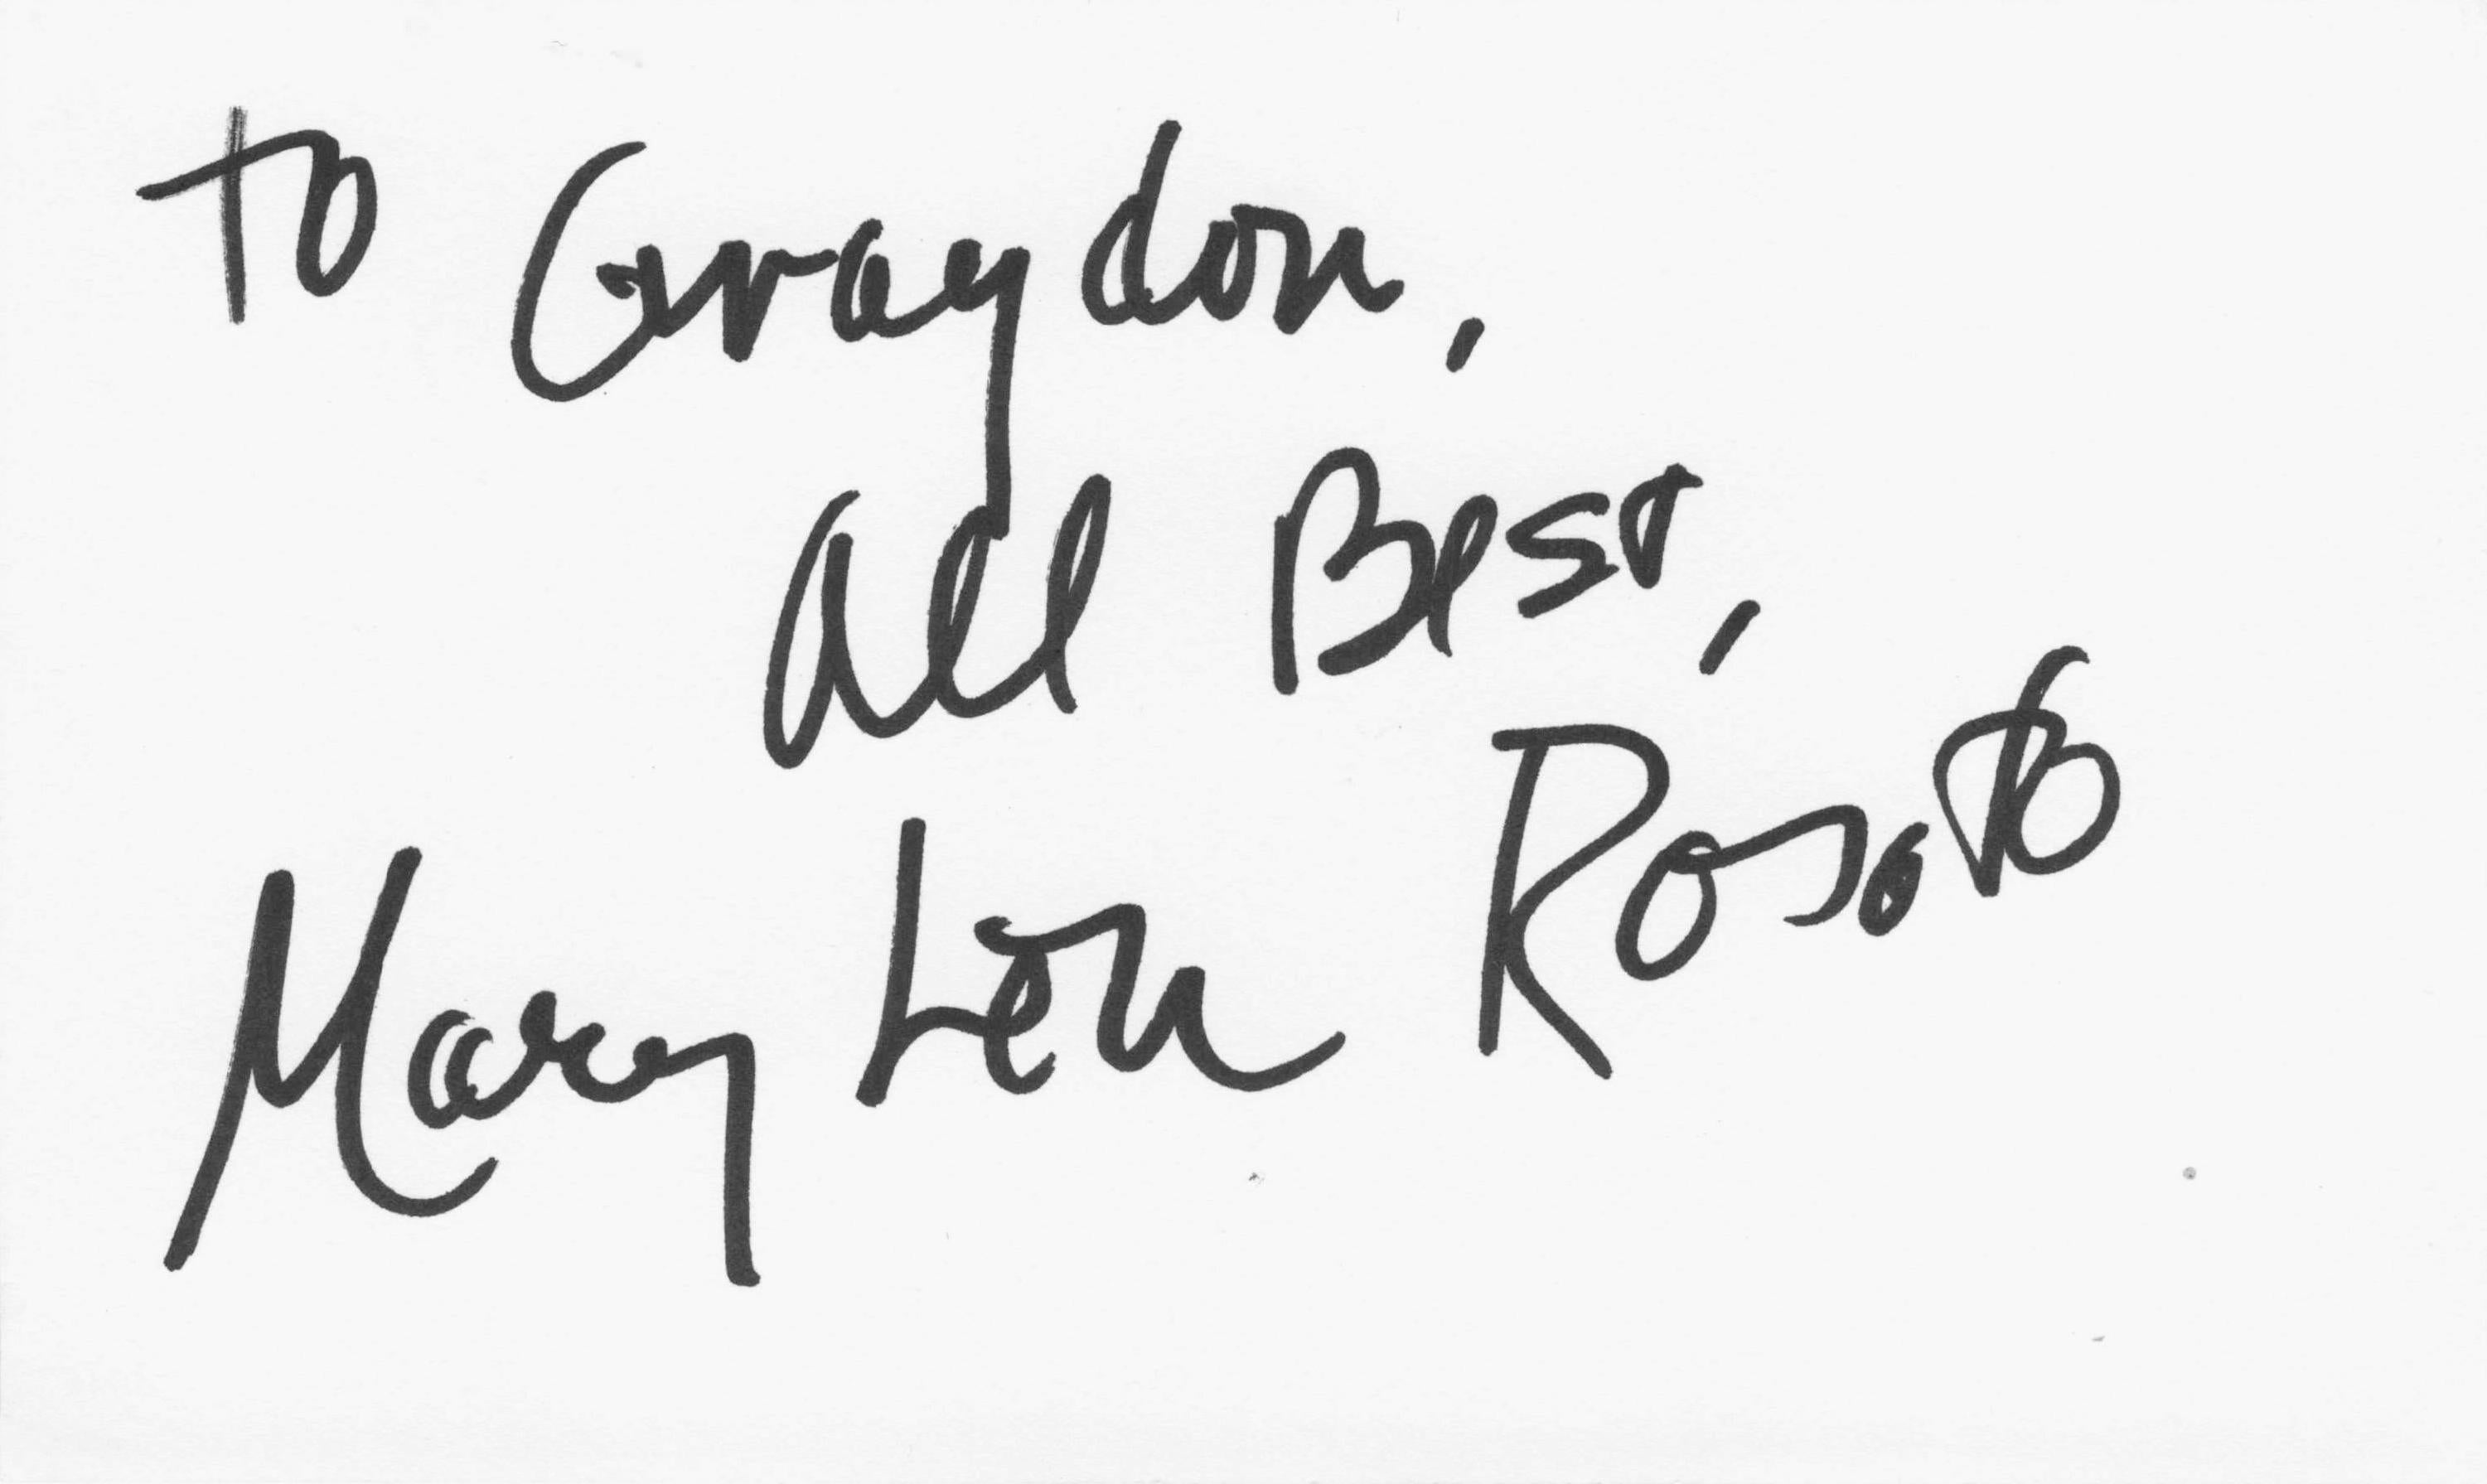 to Graydon,
All Best,
Mary Lou Rosato